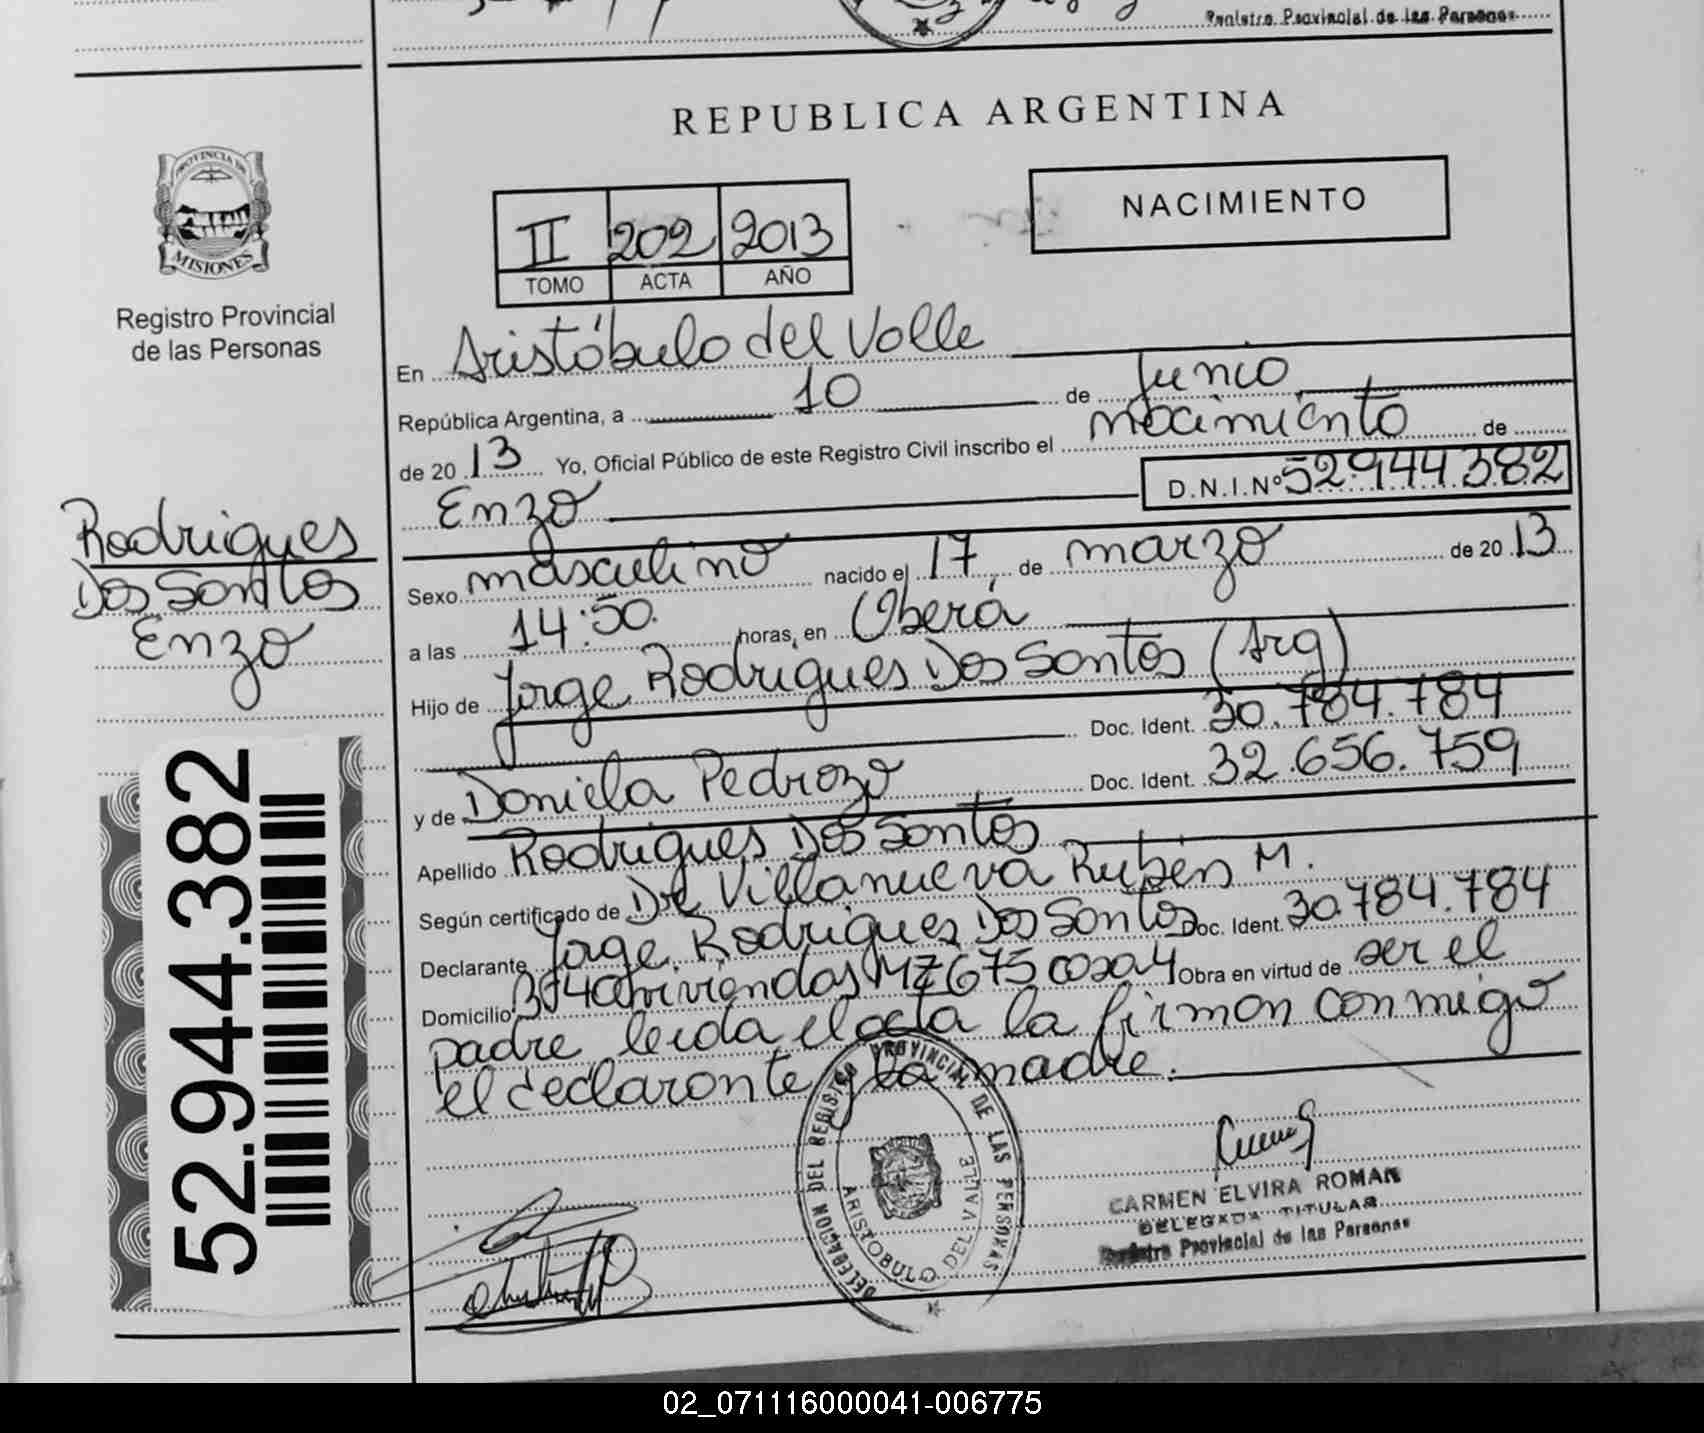 Registro Provincial de las Personas
REPUBLICA ARGENTINA
NACIMIENTO
II 202 2013
TOMO ACTA AÑO
PROVINCIA DE
MISIONES
Registro Provincial
de las Personas
Rodrigues
Dos Santos
Enzo
52.944.382
En Aristóbulo del Valle
República Argentina, a 10 de Junio
de 20 13 Yo, Oficial Público de este Registro Civil inscribo el nacimiento de
Enzo D.N.I.Nº 52.944.382
Sexo masculino nacido el 17 de marzo de 20 13
a las 14:50 horas, en Oberá
Hijo de Jorge Rodrigues Dos Santos (Arg)
Doc. Ident. 30.784.784
y de Daniela Pedrozo Doc. Ident. 32.656.759
Apellido Rodrigues Dos Santos
Según certificado de Dr Villanueva Rubén M.
Declarante Jorge Rodrigues Dos Santos Doc. Ident. 30.784.784
Domicilio viviendas MZ 675 casa 4 Obra en virtud de ser el
padre leida el acta la firman conmigo
el declarante y la madre.
DELEGACION DEL REGISTRO PROVINCIAL DE LAS PERSONAS
ARISTOBULO DEL VALLE
CARMEN ELVIRA ROMAN
DELEGADA TITULAR
Registro Provincial de las Personas
02_071116000041-006775